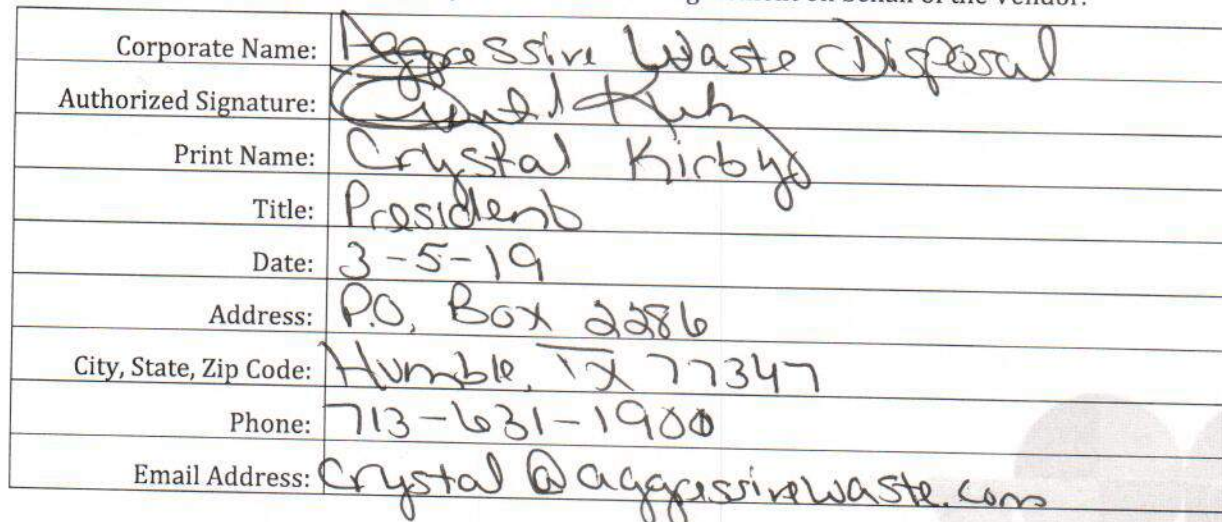 on behalf of the Vendor.
Corporate Name: Aggressive Waste Disposal
Authorized Signature:
Print Name: Crystal Kirby
Title: President
Date: 3-5-19
Address: P.O. Box 2286
City, State, Zip Code: Humble, TX 77347
Phone: 713-631-1900
Email Address: Crystal @ aggressivewaste.com